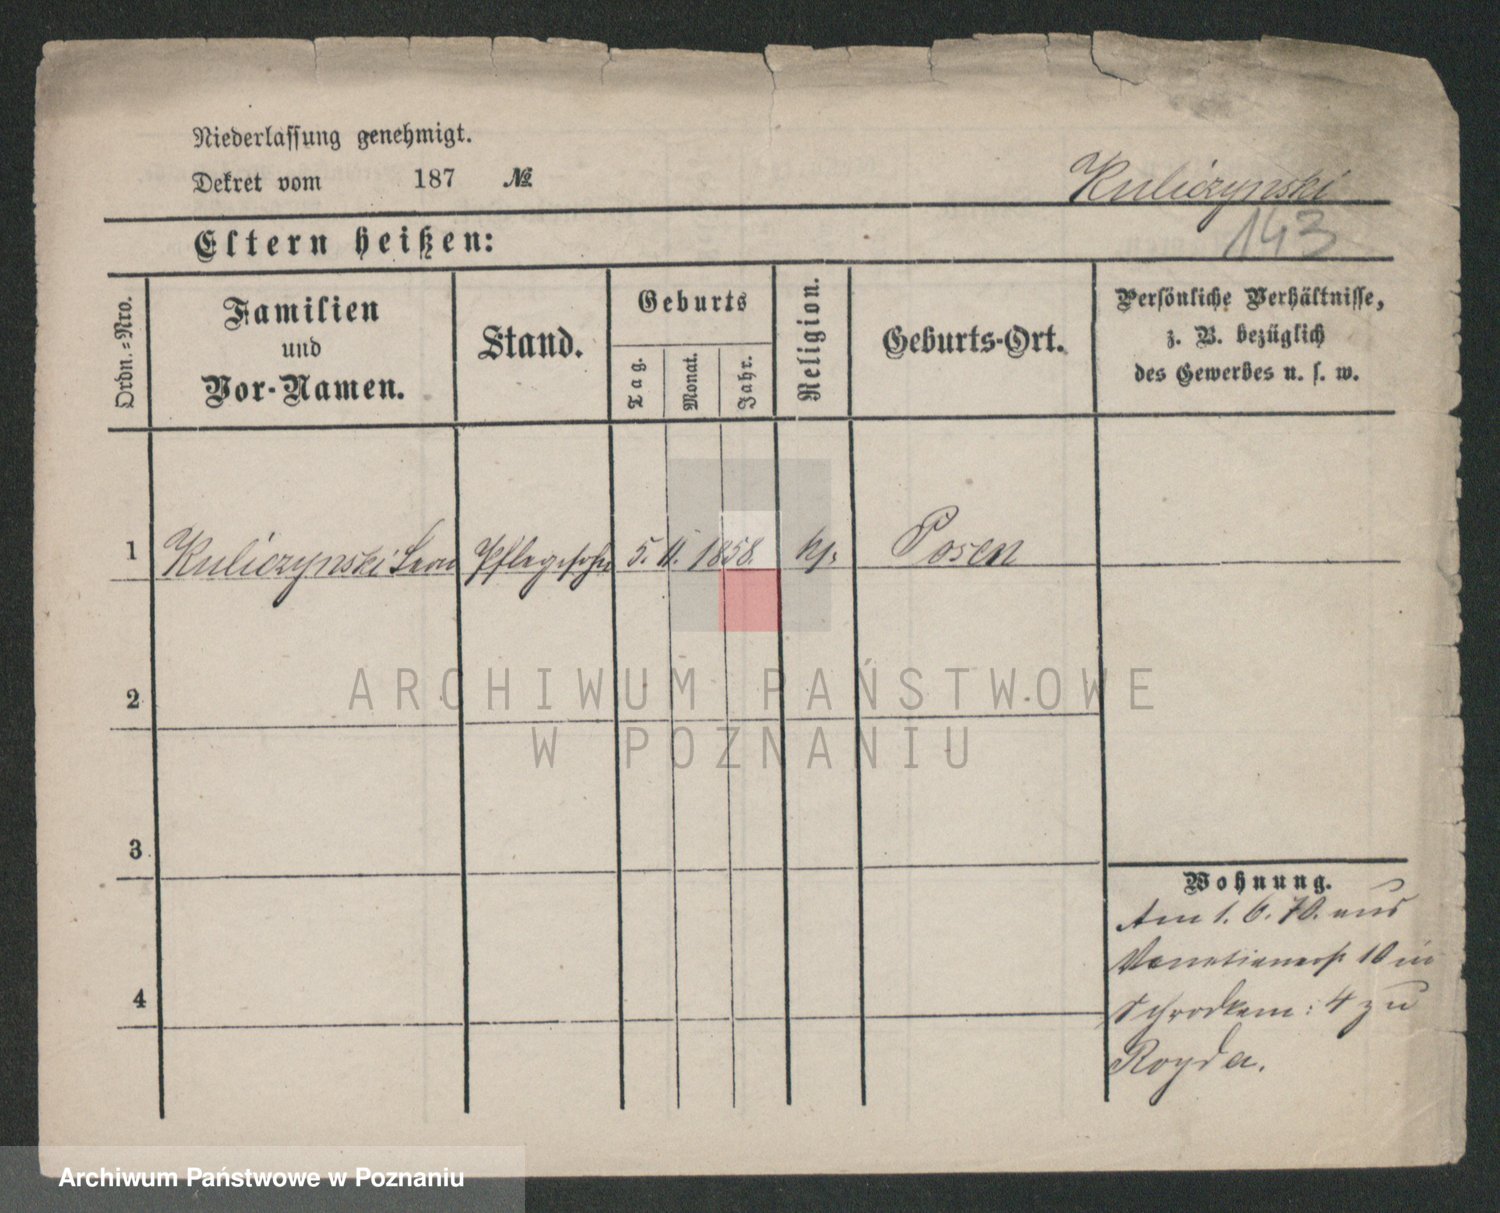 Niederlassung genehmigt.
Dekret vom 187 №
Kuliczynski
143
Eltern heißen:
Ordn.-Nro.
Familien
und
Vor-Namen.
Stand.
Geburts
Tag.
Monat.
Jahr.
Religion.
Geburts-Ort.
Persönliche Verhältnisse,
z. B. bezüglich
des Gewerbes u. s. w.
1 Kuliczynski Leon Pflegesohn 5. 11. 1858. kf. Posen
2
3
4
Wohnung.
Am 1. 6. 70. aus
Venetianerstr 10 in
Schrodkam: 4 zu
Royda.
ARCHIWUM PAŃSTWOWE
W POZNANIU
Archiwum Państwowe w Poznaniu